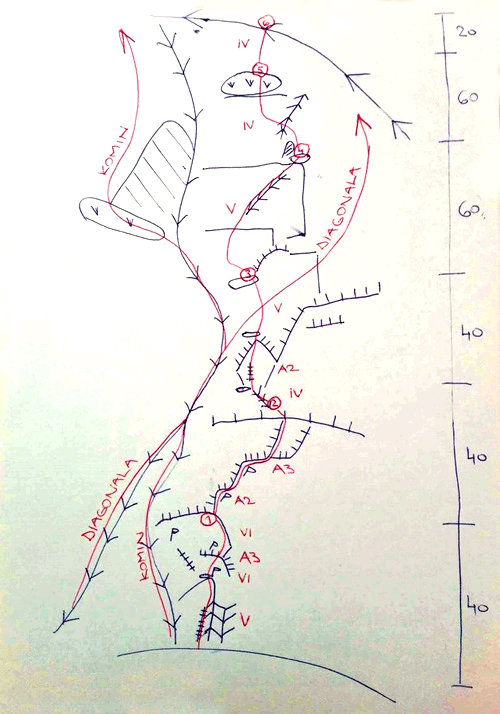 6
20
IV
5
60
KOMIN
IV
4
DIAGONALA
V
60
3
V
40
A2
IV
2
A3
40
P
A2
P
1
DIAGONALA
P
VI
P
A3
KOMIN
P
VI
40
V